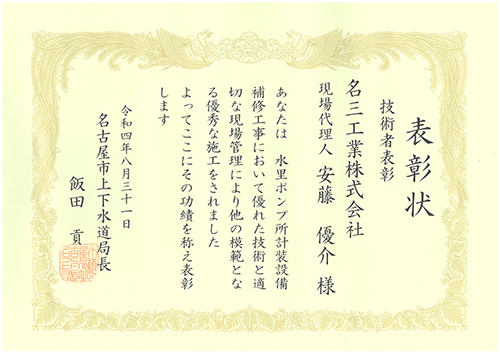 表彰状
技術者表彰
名三工業株式会社
現場代理人 安藤 優介 様
あなたは 水里ポンプ所計装設備
補修工事において優れた技術と適
切な現場管理により他の模範とな
る優秀な施工をされました
よってここにその功績を称え表彰
します
令和四年八月三十一日
名古屋市上下水道局長
飯田 貢